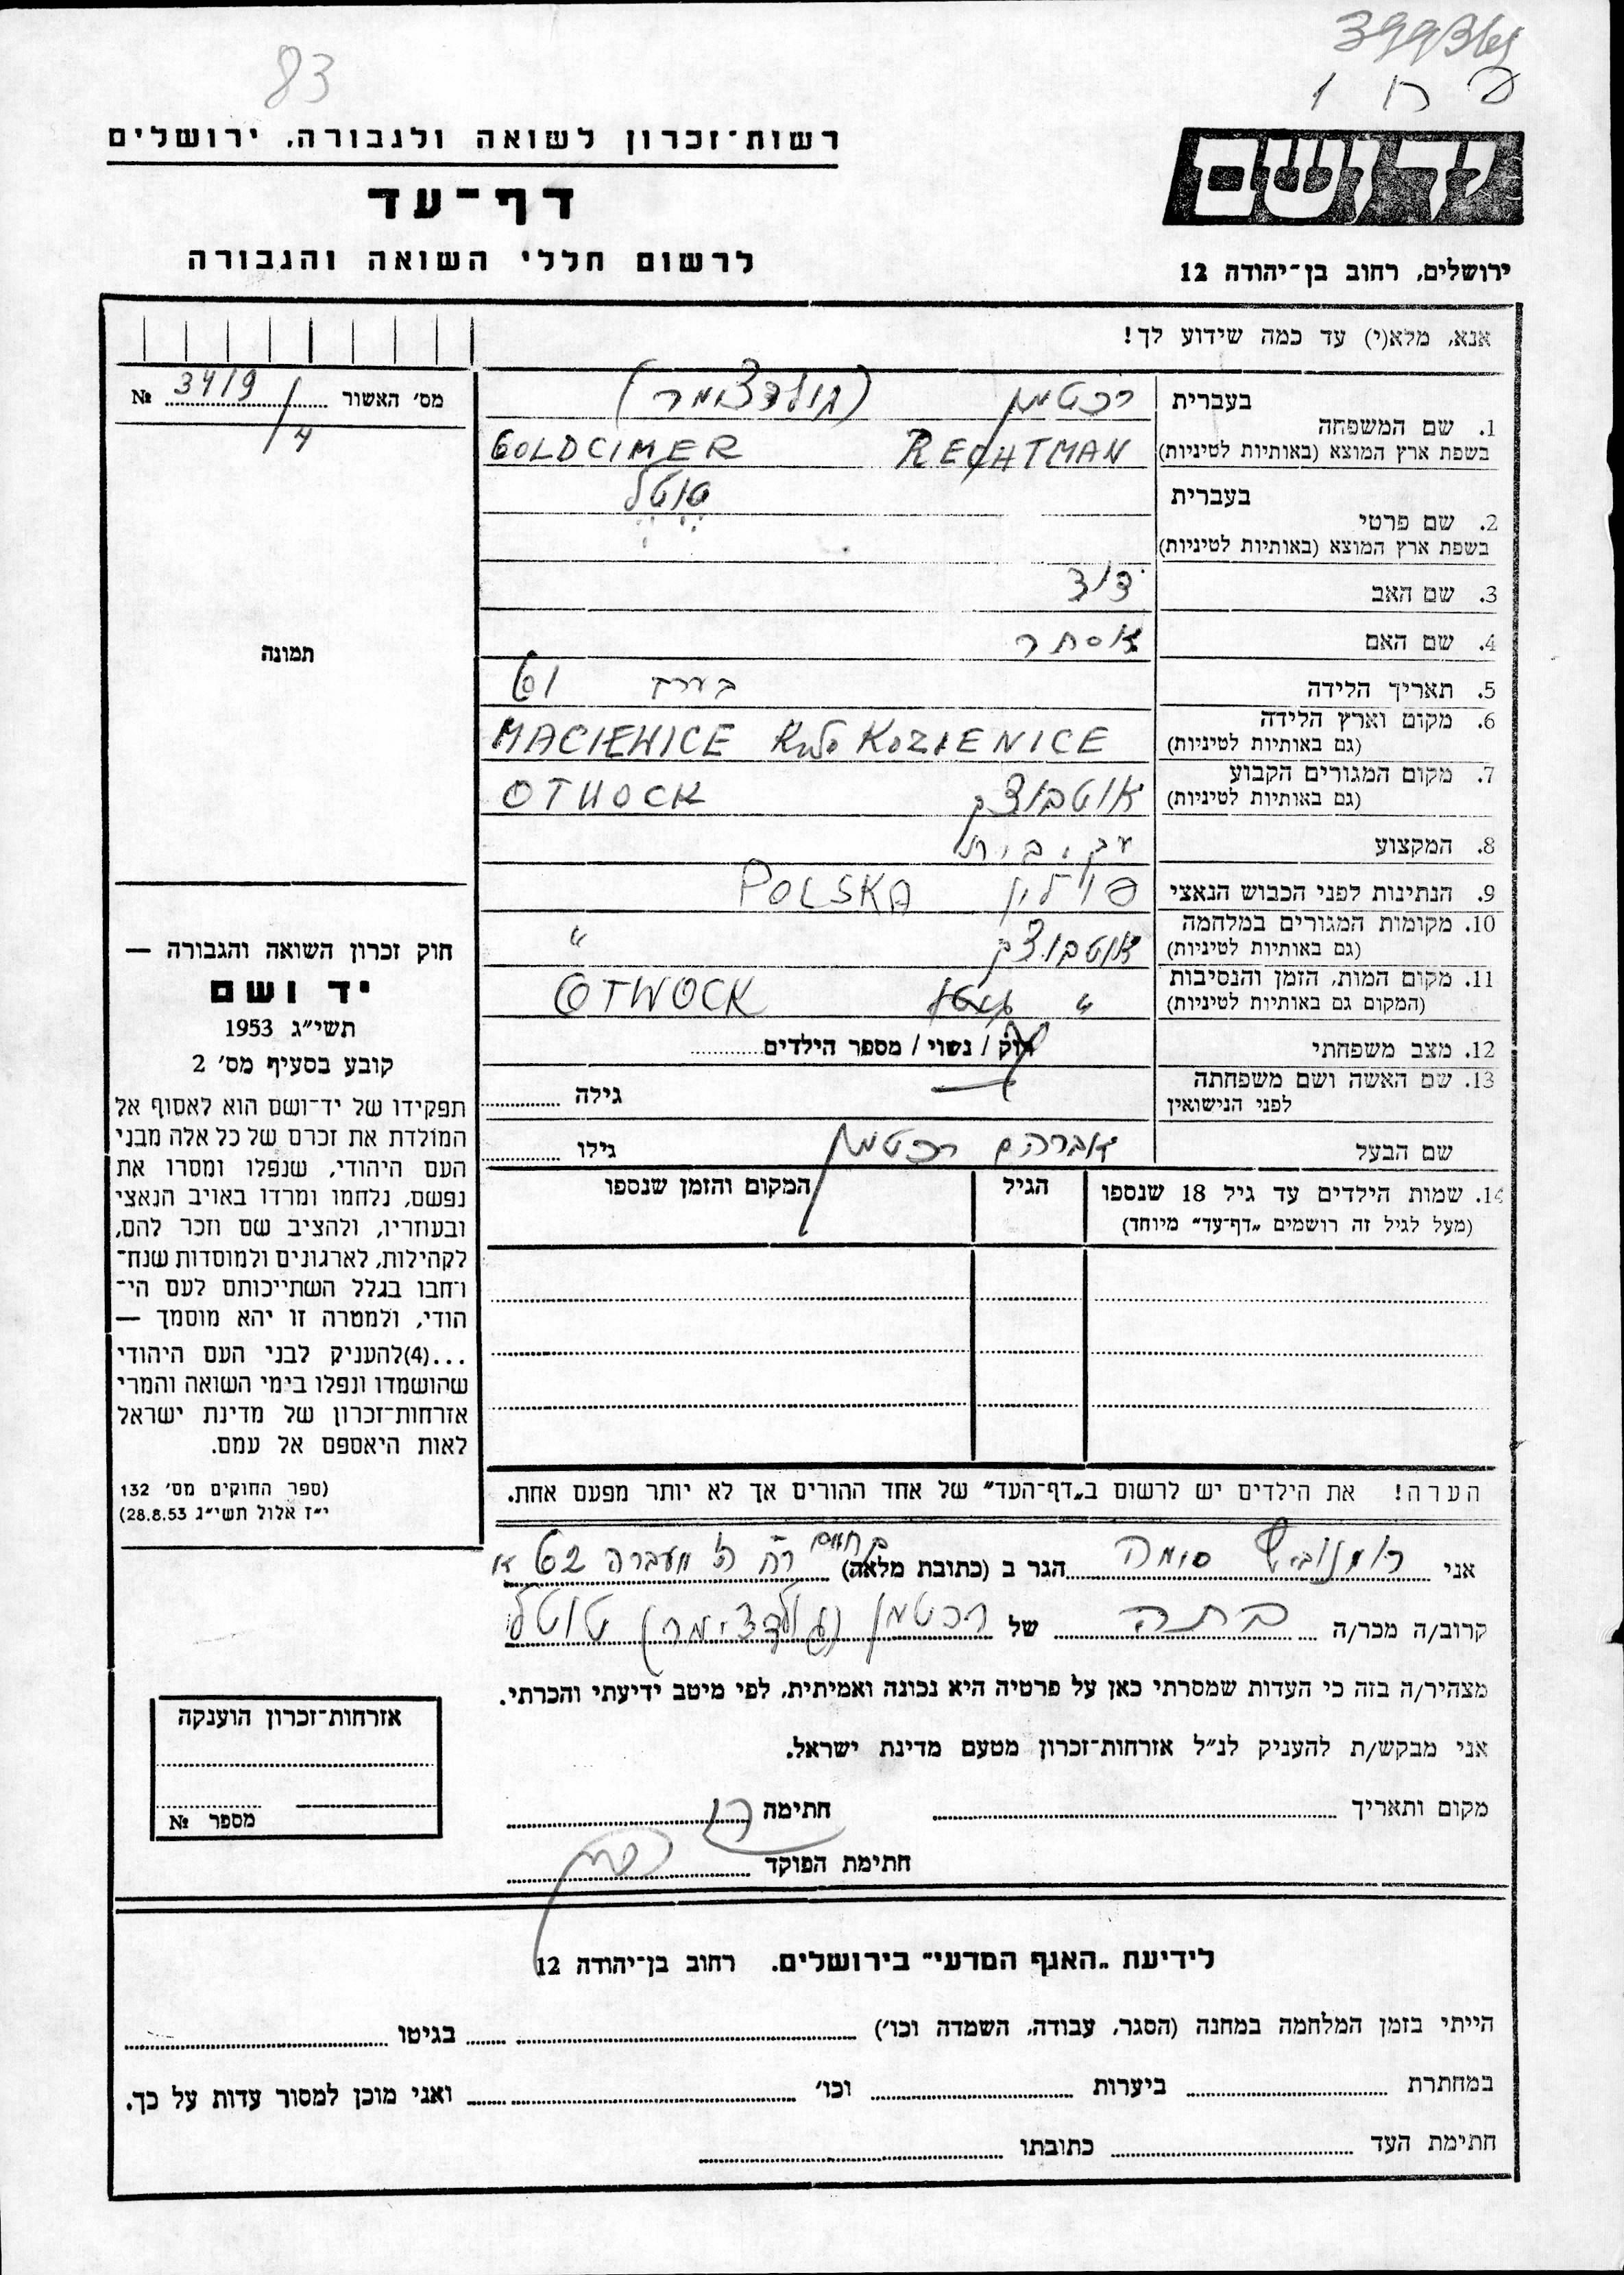 83
רשות־זכרון לשואה ולגבורה, ירושלים
דף־עד
לרשום חללי השואה והגבורה
יד ושם
ירושלים, רחוב בן־יהודה 12
אנא, מלא(י) עד כמה שידוע לך!
מס׳ האשור № 3419/4
בעברית רכטמן (גולדצימר)
1. שם המשפחה
בשפת ארץ המוצא (באותיות לטיניות) RECHTMAN GOLDCIMER
בעברית טוטל
2. שם פרטי
בשפת ארץ המוצא (באותיות לטיניות)
3. שם האב דוד
4. שם האם אסתר
5. תאריך הלידה בערך 61
6. מקום וארץ הלידה
(גם באותיות לטיניות) MACIEWICE KOZIENICE
7. מקום המגורים הקבוע
(גם באותיות לטיניות) אוטבוצק OTWOCK
8. המקצוע עק. בית
9. הנתינות לפני הכבוש הנאצי פוילין POLSKA
10. מקומות המגורים במלחמה
(גם באותיות לטיניות) אוטבוצק "
11. מקום המות, הזמן והנסיבות
(המקום גם באותיות לטיניות) " OTWOCK
12. מצב משפחתי רוק / נשוי / מספר הילדים
13. שם האשה ושם משפחתה
לפני הנישואין גילה
שם הבעל אברהם רכטמן גילו
14. שמות הילדים עד גיל 18 שנספו הגיל המקום והזמן שנספו
(מעל לגיל זה רושמים „דף־עד״ מיוחד)
תמונה
חוק זכרון השואה והגבורה —
יד ושם
תשי״ג 1953
קובע בסעיף מס׳ 2
תפקידו של יד־ושם הוא לאסוף אל
המולדת את זכרם של כל אלה מבני
העם היהודי, שנפלו ומסרו את
נפשם, נלחמו ומרדו באויב הנאצי
ובעוזריו, ולהציב שם וזכר להם,
לקהילות, לארגונים ולמוסדות שנח־
רחבו בגלל השתייכותם לעם הי־
הודי, ולמטרה זו יהא מוסמך —
...(4)להעניק לבני העם היהודי
שהושמדו ונפלו בימי השואה והמרי
אזרחות־זכרון של מדינת ישראל
לאות היאספם אל עמם.
(ספר החוקים מס׳ 132
י״ז אלול תשי״ג 28.8.53)
הערה! את הילדים יש לרשום ב„דף־העד״ של אחד ההורים אך לא יותר מפעם אחת.
אני רומנוביץ סימה הגר ב (כתובת מלאה) מעברה 62 א
קרוב/ה מכר/ה בתה של רכטמן (גולדצימר) טוטל
מצהיר/ה בזה כי העדות שמסרתי כאן על פרטיה היא נכונה ואמיתית, לפי מיטב ידיעתי והכרתי.
אני מבקש/ת להעניק לנ״ל אזרחות־זכרון מטעם מדינת ישראל.
מקום ותאריך חתימה
חתימת הפוקד
אזרחות־זכרון הוענקה
מספר №
לידיעת „האגף המדעי״ בירושלים. רחוב בן־יהודה 12
הייתי בזמן המלחמה במחנה (הסגר, עבודה, השמדה וכו׳) בגיטו
במחתרת ביערות וכו׳ ואני מוכן למסור עדות על כך.
חתימת העד כתובתו